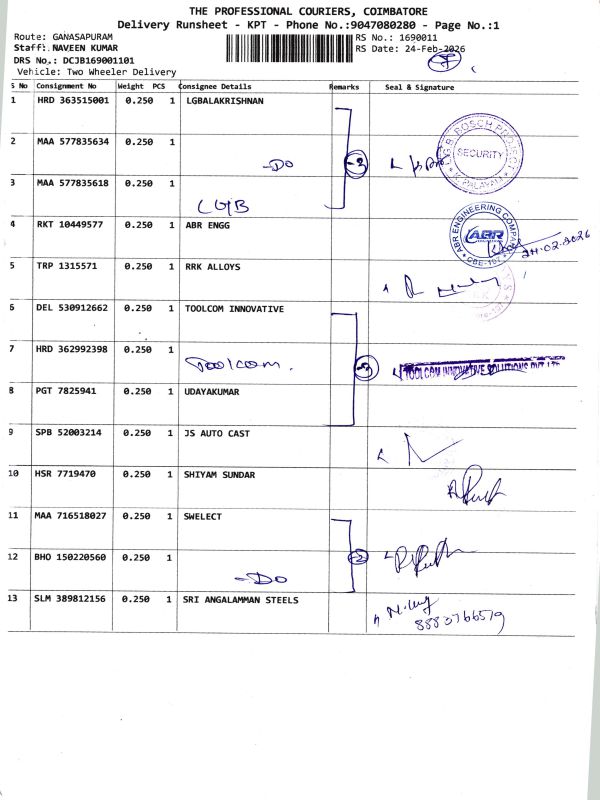 THE PROFESSIONAL COURIERS, COIMBATORE
Delivery Runsheet - KPT - Phone No.:9047080280 - Page No.:1
Route: GANASAPURAM
RS No.: 1690011
Staff: NAVEEN KUMAR
RS Date: 24-Feb-2026
DRS No.: DCJB169001101
Vehicle: Two Wheeler Delivery
S No Consignment No Weight PCS Consignee Details Remarks Seal & Signature
1 HRD 363515001 0.250 1 LGBALAKRISHNAN
2 MAA 577835634 0.250 1
-Do
L.G.B. BOSCH PROJECT
SECURITY
3 MAA 577835618 0.250 1
LGB
4 RKT 10449577 0.250 1 ABR ENGG
ABR ENGINEERING COMPANY
ABR
24.02.2026
5 TRP 1315571 0.250 1 RRK ALLOYS
6 DEL 530912662 0.250 1 TOOLCOM INNOVATIVE
7 HRD 362992398 0.250 1
Toolcom.
TOOLCOM INNOVATIVE SOLUTIONS PVT LTD
8 PGT 7825941 0.250 1 UDAYAKUMAR
9 SPB 52003214 0.250 1 JS AUTO CAST
10 HSR 7719470 0.250 1 SHIYAM SUNDAR
11 MAA 716518027 0.250 1 SWELECT
12 BHO 150220560 0.250 1
-2
-Do
13 SLM 389812156 0.250 1 SRI ANGALAMMAN STEELS
8883766579